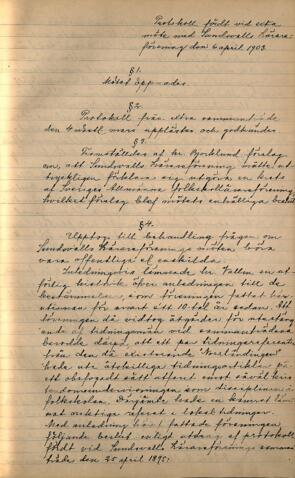 Protokoll fördt vid extra
möte med Sundsvalls Lärare-
förening den 6 april 1903.
§1.
Mötet öppnades.
§2.
Protokoll från extra sammanträde
den 4 sistl. mars upplästes och godkändes
§3.
Framställdes af hr Björklund förslag
om, att Sundsvalls Lärareförening måtte
fortfarande utgöra en krets
af Sveriges Allmänna Folkskollärareförening
hvilket förslag blef mötets enhälliga beslut
§4.
Upptogs till behandling frågan om
Sundsvalls Lärareförenings möten böra
vara offentliga el. enskilda.
Inledningsvis lämnade hr. Fallem en ut-
förlig historik öfver anledningen till de
bestämmelser, som föreningen fattat
för snart ett 10-tal år sedan. Att
föreningen då vidtog åtgärder för
af tidningsmän vid sammanträdena
berodde därpå, att ett par tidningsreferat
från den då existerande "Norrländingen"
hade ur åtskilliga tidningsartiklar på
ett obefogadt sätt utfarit mot såväl
som disciplinen i
folkskolan. Dessutom hade en
oriktiga referat i lokal tidningar.
Med anledning häraf fattade föreningen
följande beslut enligt utdrag af protokoll
fördt vid Sundsvalls Lärareförenings samman-
träde den 25 april 1895: